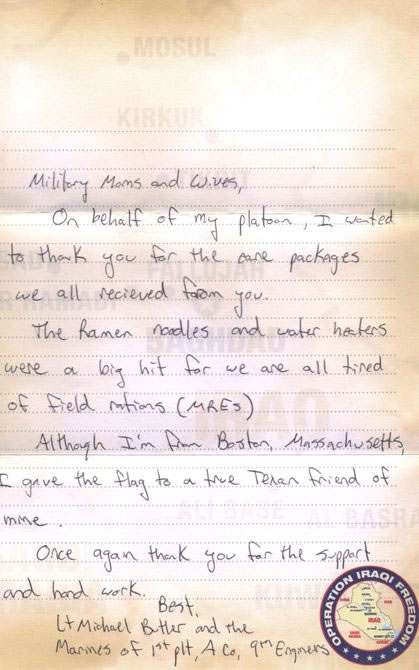 MOSUL
KIRKUK
Military Moms and Wives,
On behalf of my platoon, I wanted
to thank you for the care packages
FALLUJAH
we all recieved from you.
The Ramen noodles and water heaters
BAGHDAD
were a big hit for we are all tired
of field rations (MREs)
IRAQ
Although I'm from Boston, Massachusetts,
I gave the flag to a true Texan friend of
mine.
ALI BASE
AL BASRA
Once again thank you for the support
and hard work.
Best,
Lt Michael Butler and the
Marines of 1st plt, A Co, 9th Engineers
OPERATION IRAQI FREEDOM
IRAQ